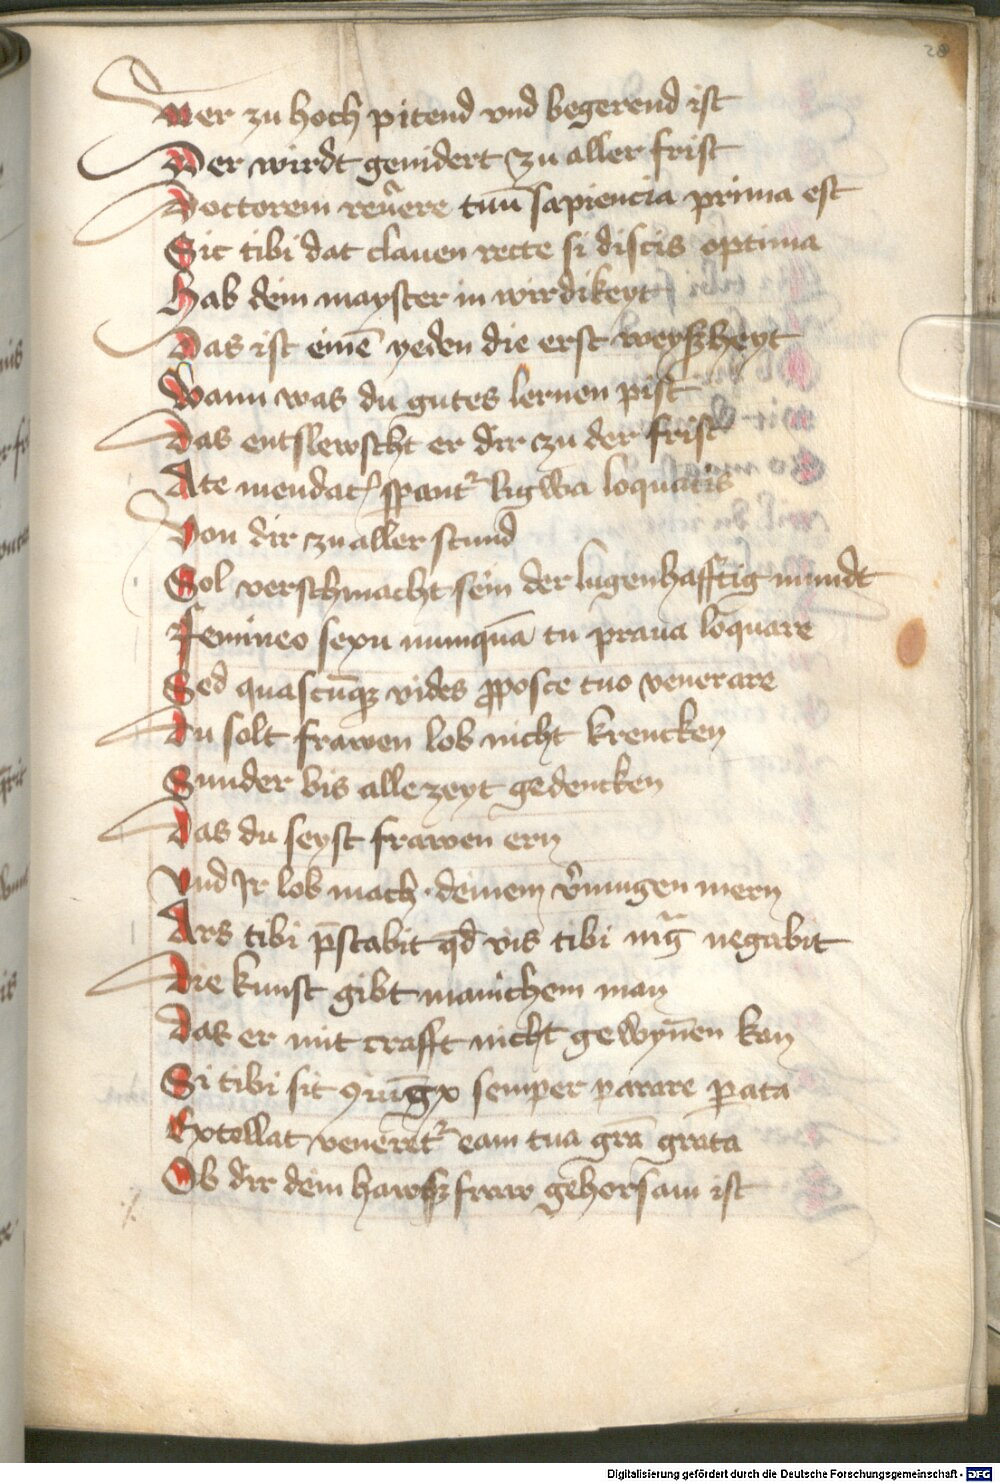 28
Wer zu hoch pitend vnd begerend ist
Der wirdt genidert zu aller frist
Doctorem reuere tuū sapiencia prima est
Sic tibi dat clauen recte si discis optima
Hab dein mayster in wirdikeyt
Das ist einē yeden die erst weyßheyt
Wann was du gutes lernen pist
Das entslewscht er dir zu der frist
A te mendat spant lingwa loquatis
Von dir zu aller stund
Sol verschmacht sein der lugenhafftig mundt
Femineo sexu nunquā tu praua loquare
Sed quascūqꝫ vides ꝓposce tuo venerare
Du solt frawen lob nicht krencken
Sunder bis alle zeyt gedencken
Das du seyst frawen ern
Vnd Ir lob mach deinem v̄mugen mern
Ars tibi p̄stabit qd̄ vis tibi mḡ negabit
Die kunst gibt manichem man
Das er mit crafft nicht gewyn̄en kan
Si tibi sit ꝯiūgx semper parare ꝑata
Extollat veneret eam tua grā grata
Ob dir dein hawßfraw gehorsam ist
Digitalisierung gefördert durch die Deutsche Forschungsgemeinschaft - DFG